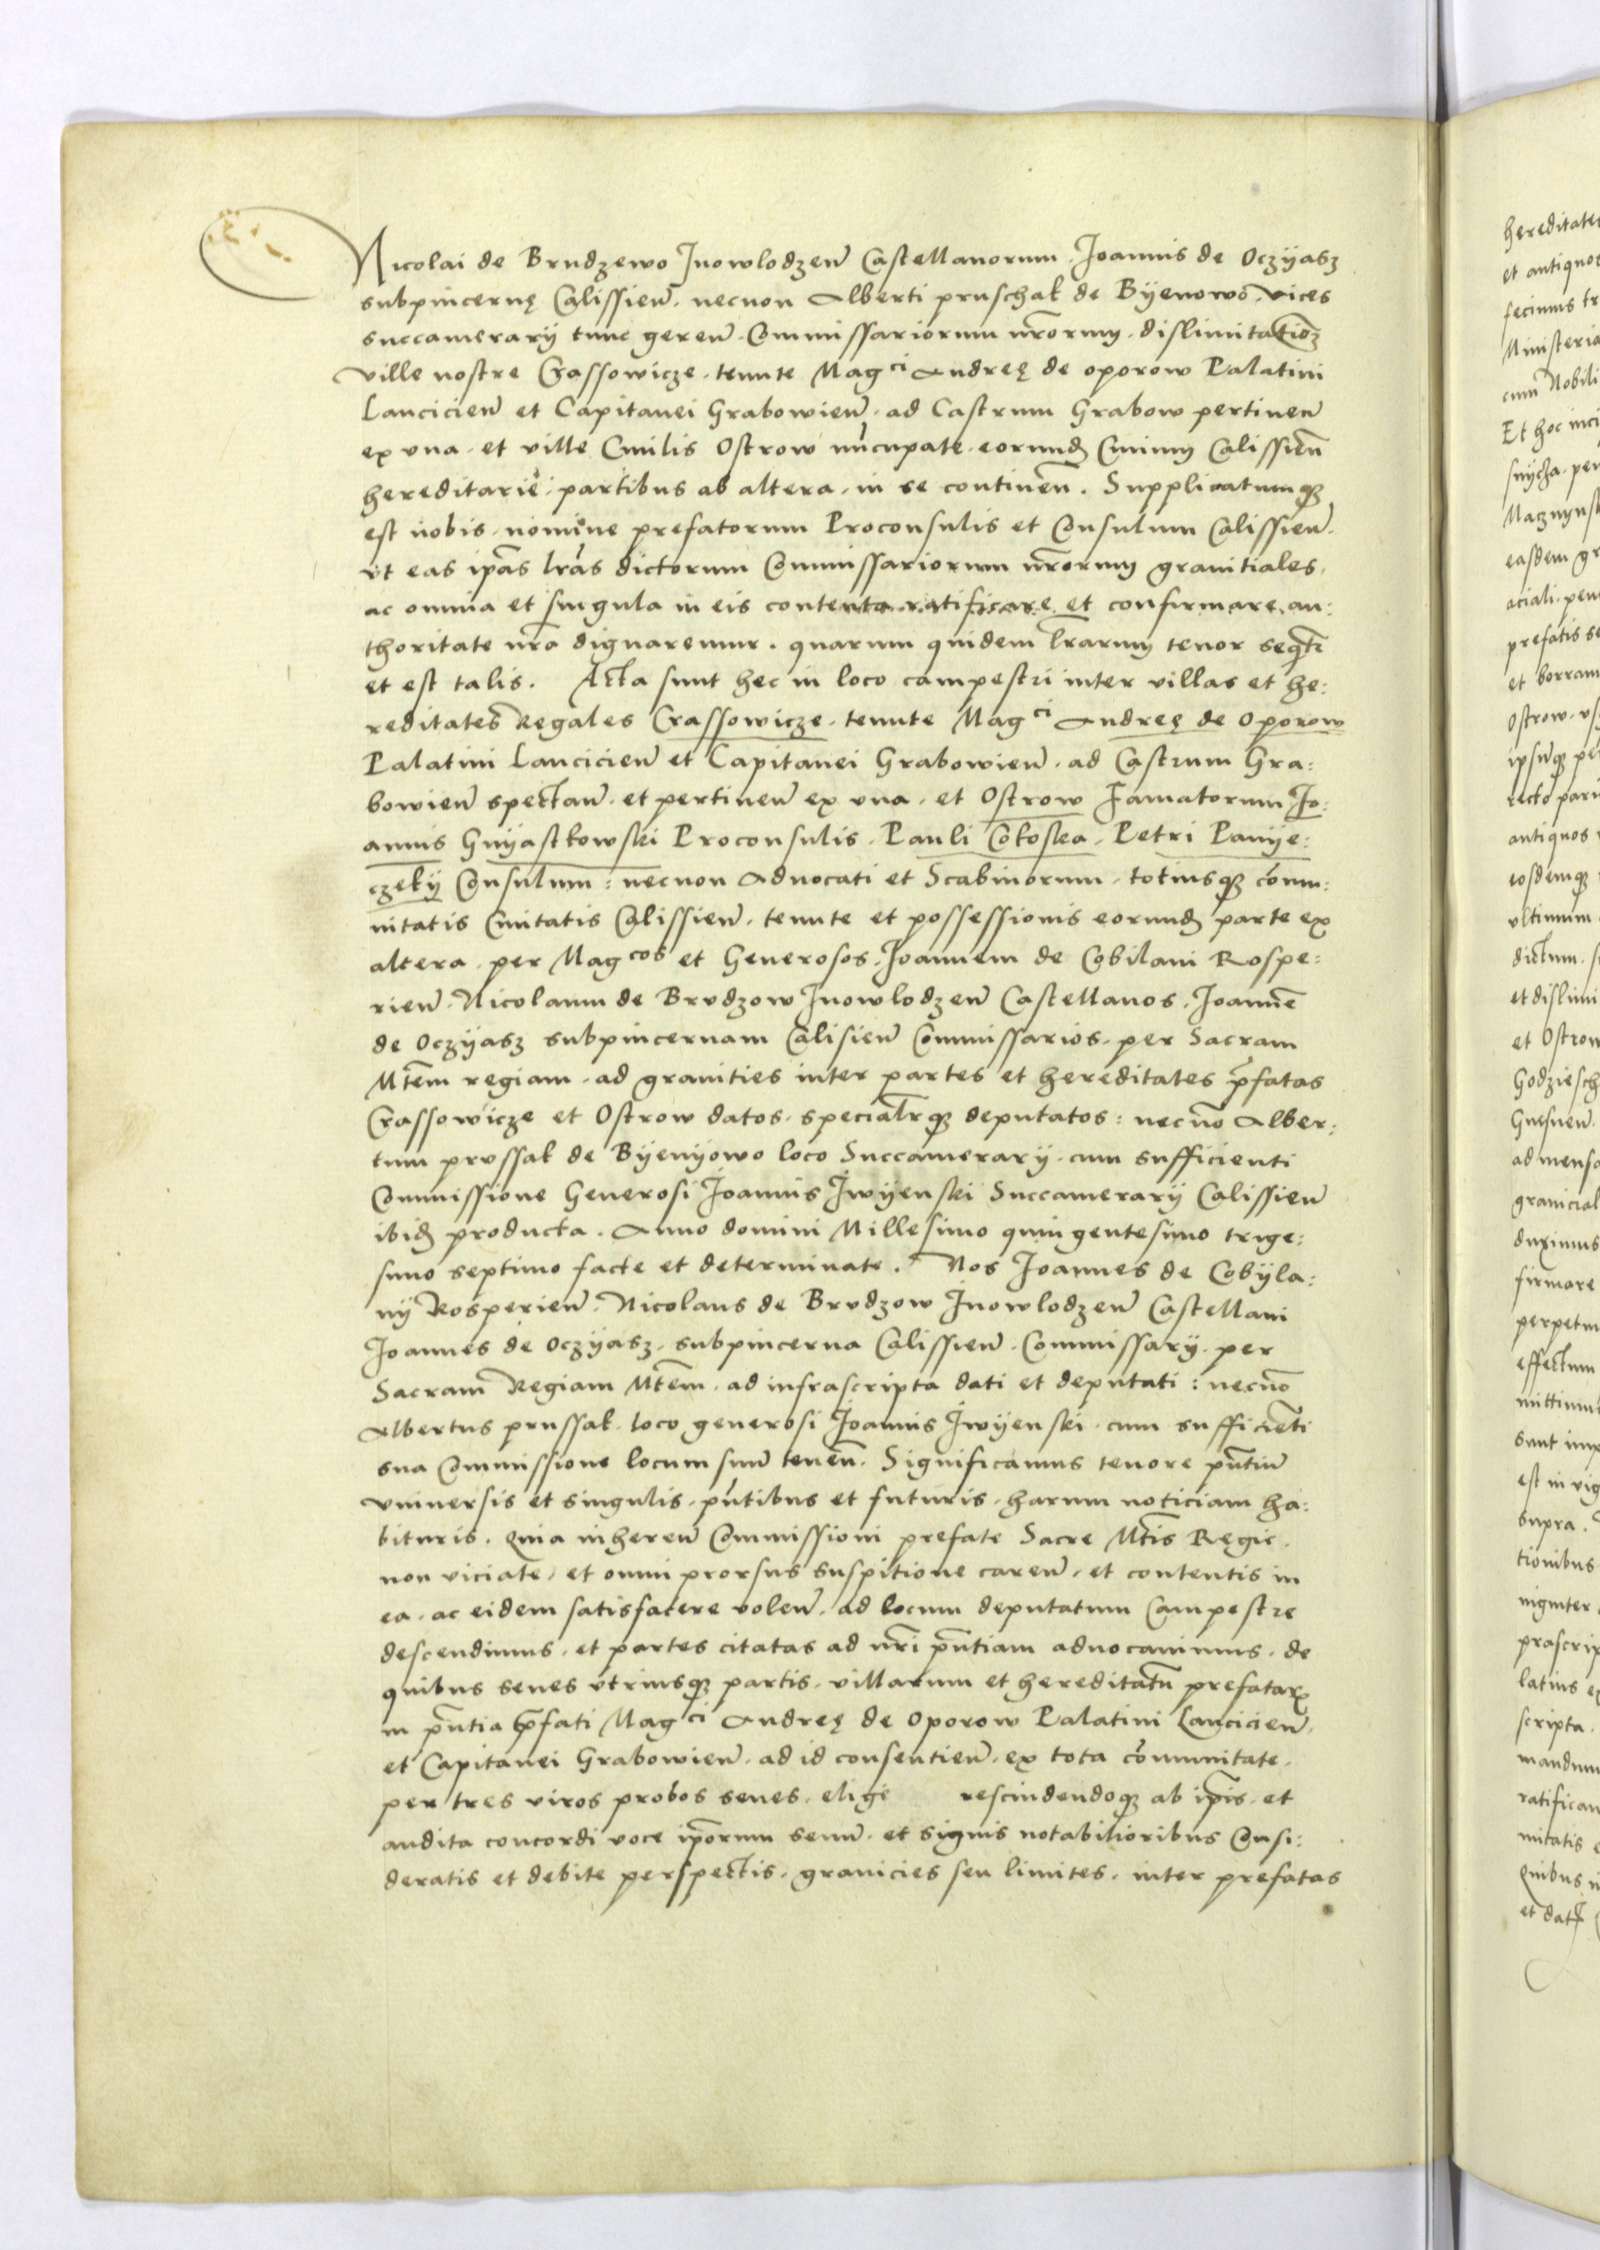 Nicolai de Brudzewo Inowlodzeñ Castellanorum. Joannis de Oczÿasz
subpincernę Calissieñ. necnon Alberti pruschak de Bÿenowo. vices
succamerarÿ tunc gereñ. Commissariorum nr̃orum. dislimitatioẽ
ville nostre Crassowicze. tenute Mag^ci Andreę de oporow Palatini
Lancicieñ et Capitanei Grabowieñ. ad Castrum Grabow pertineñ
ex vna. et ville Ciuilis Ostrow nũcupate. eorund̃ Ciuium Calissieñ
hereditarie. partibus ab altera. in se contineñ. Supplicatumq̃
est nobis. nomine prefatorum Proconsulis et Consulum Calissieñ.
vt eas ip̃as lr̃as dictorum Commissariorum nr̃orum granitiales.
ac omnia et singula in eis contenta ratificare et confirmare. au:
thoritate nr̃a dignaremur. quarum quidem lr̃arum tenor seqt̃r
et est talis. Acta sunt hec in loco campestri inter villas et he:
reditates Regales Crassowicze. tenute Mag^ci Andreę de Oporow
Palatini Lancicieñ et Capitanei Grabowieñ. ad Castrum Gra:
bowieñ spectañ. et pertineñ ex vna. et Ostrow Famatorum Jo:
annis Gnÿastkowski Proconsulis. Pauli Cotoska. Petri Panÿe:
czekÿ Consulum: necnon Aduocati et Scabinorum. totiusq̃ cõmu:
nitatis Ciuitatis Calissieñ. tenute et possessionis eorund̃ parte ex
altera. per Mag^cos et Generosos. Joannem de Cobilani Rospe:
rieñ. Nicolaum de Brudzow Inowlodzeñ Castellanos. Joannẽ
de Oczÿasz subpincernam Calisieñ Commissarios. per Sacram
Mt̃em regiam. ad granities inter partes et hereditates p̃fatas
Crassowicze et Ostrow datos. specialr̃q̃ deputatos: necnõ Alber:
tum prussak de Bÿenÿowo loco Succamerarÿ. cum sufficienti
Commissione Generosi Joannis Iwÿenski Succamerarÿ Calissieñ
ibid̃ producta. Anno domini Millesimo quingentesimo trige:
simo septimo facte et determinate. Nos Joannes de Cobÿla:
nÿ Rosperieñ. Nicolaus de Brudzow Inowlodzeñ Castellani
Joannes de Oczÿasz. subpincerna Calissieñ. Commissarÿ. per
Sacram Regiam Mt̃em. ad infrascripta dati et deputati: necnõ
Albertus prussak. loco generosi Joannis Iwÿenski. cum sufficiẽti
sua Commissione locum suũ teneñ. Significamus tenore pñtiũ
vniuersis et singulis. pñtibus et futuris. harum noticiam ha:
bituris. Quia inhereñ Commissioni prefate Sacre Mt̃is Regie.
non viciate. et omni prorsus suspitione careñ. et contentis in
ea. ac eidem satisfacere voleñ. ad locum deputatum Campestre
descendimus. et partes citatas ad nr̃i pñtiam aduocauimus. de
quibus senes vtriusq̃ partis. villarum et hereditatũ prefatarꝝ
in pñtia p̃fati Mag^ci Andreę de Oporow Palatini Lancicieñ.
et Capitanei Grabowieñ. ad id consentieñ. ex tota cõmunitate.
per tres viros probos senes. elige rescindendoq̃ ab ip̃is. et
audita concordi voce ip̃orum senũ. et signis notabilioribus Consi:
deratis et debite perspectis. granicies seu limites. inter prefatas